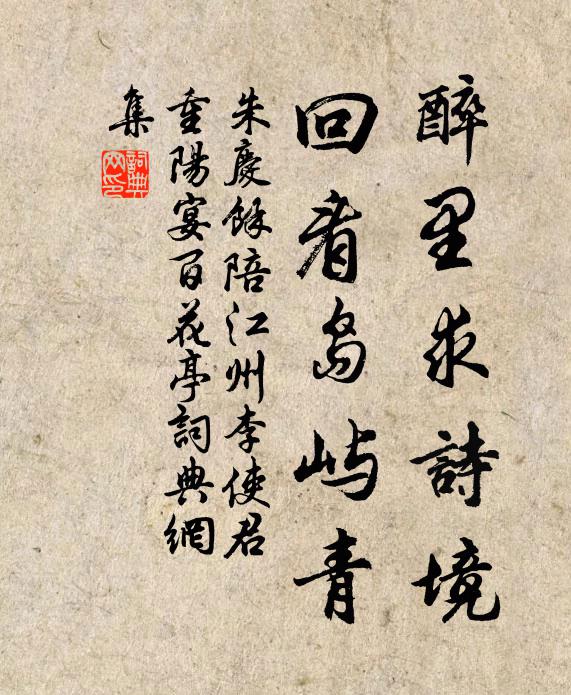 醉里求詩境
回看島屿青
朱慶餘陪江州李使君
重陽宴百花亭詞典網
集
詞典
网印